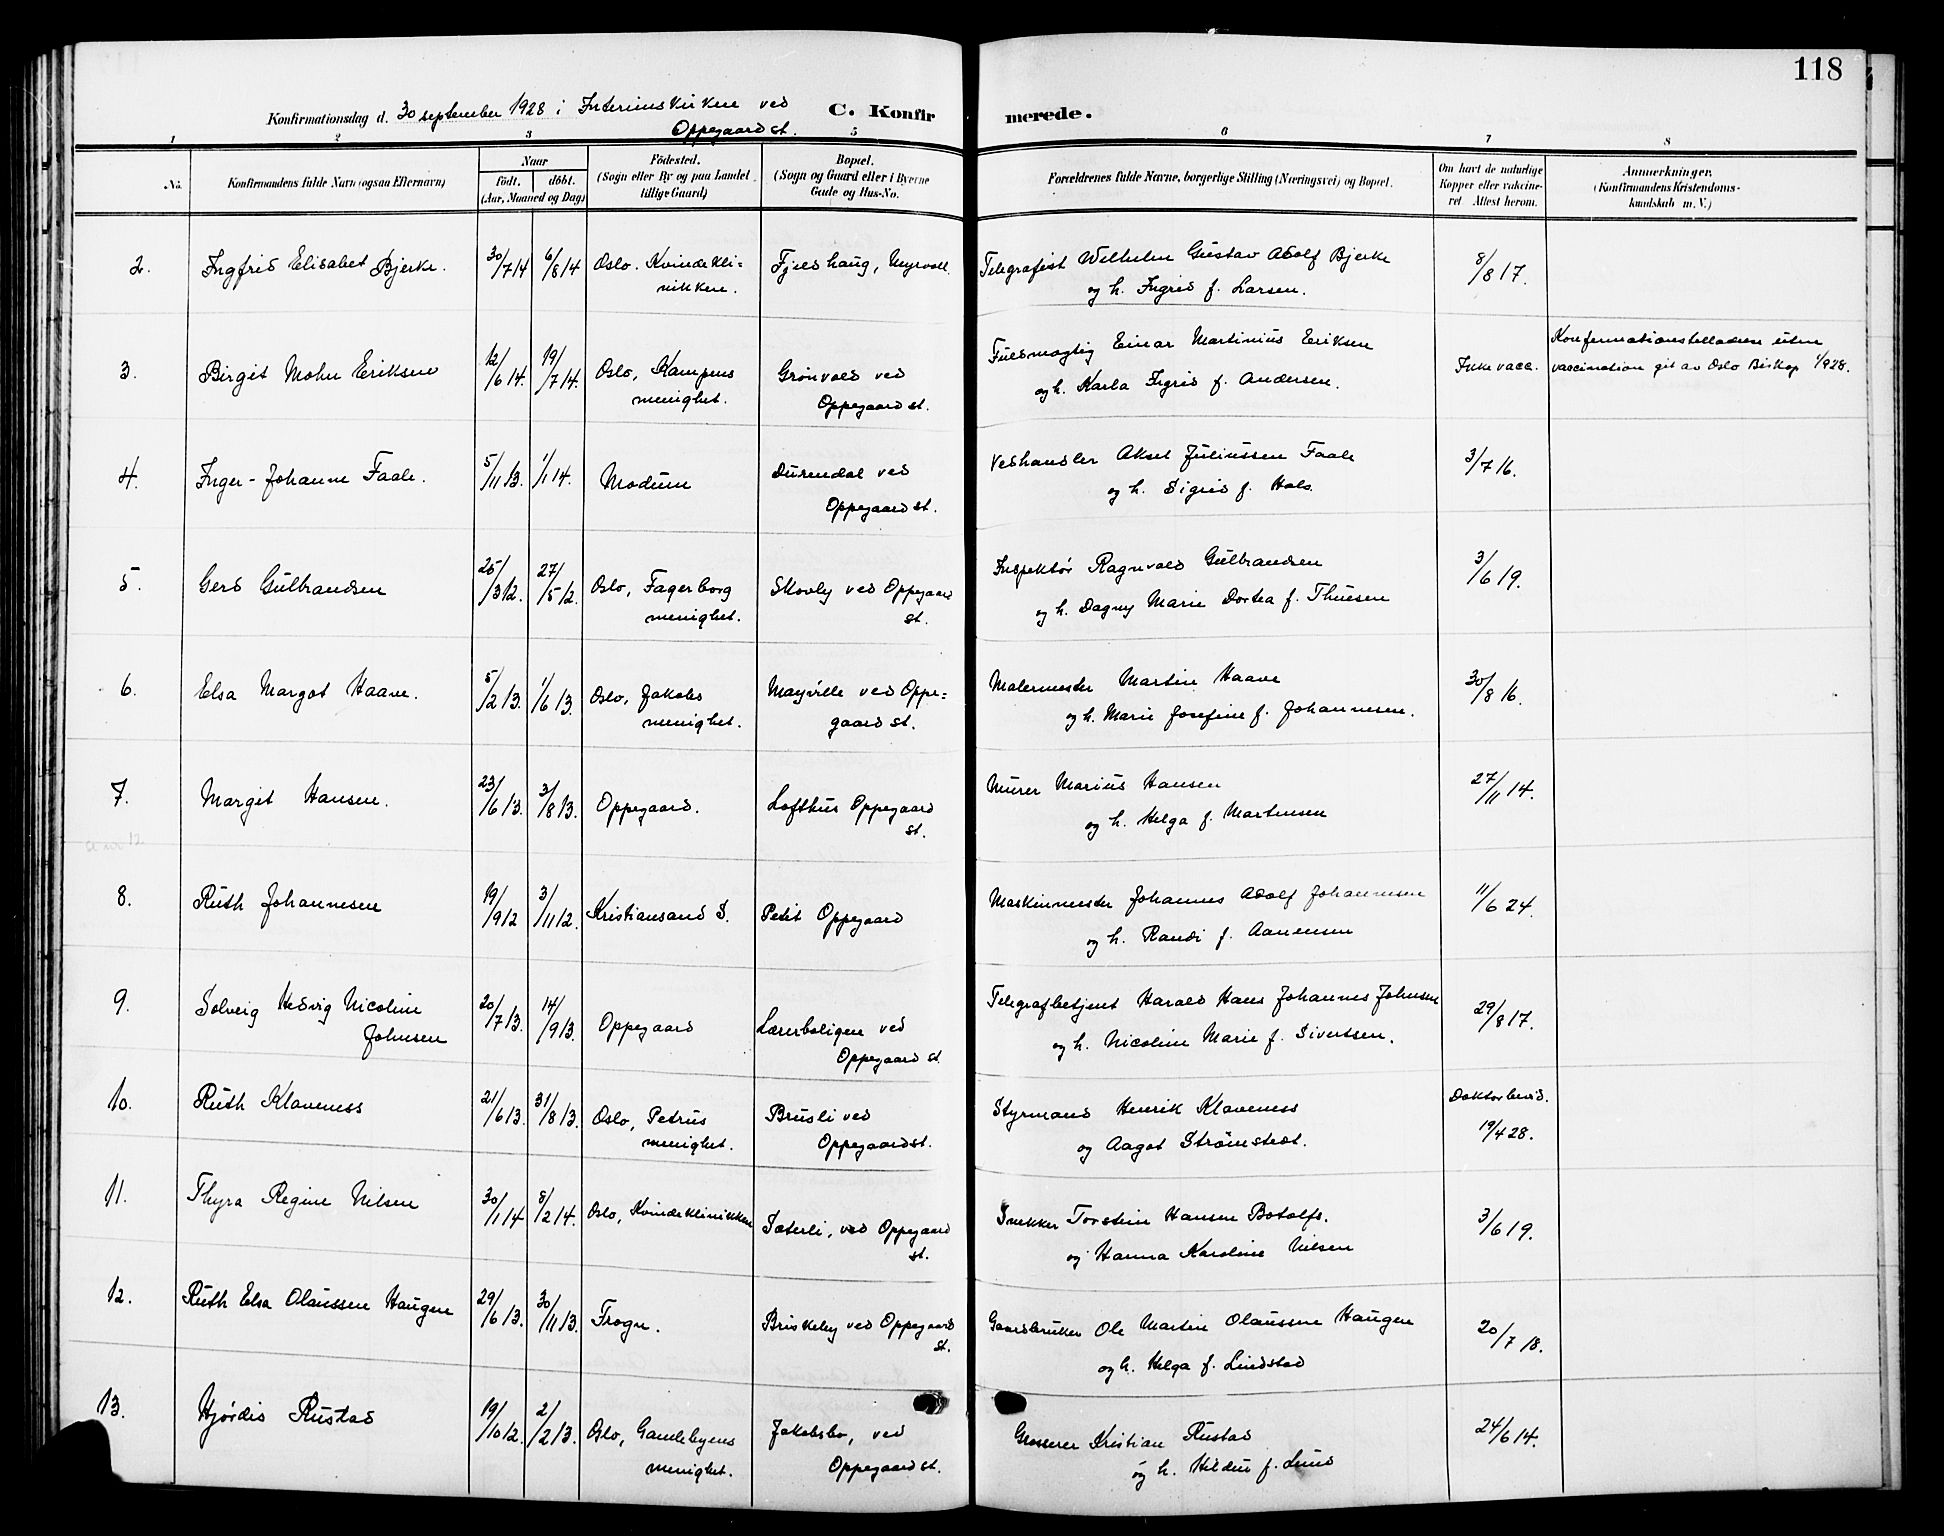 118
Konfirmationsdag d. 30 september 1928 i Interimskirken ved
Oppegaard st.
C. Konfirmerede.
1 2 3 5 6 7 8
No.
Konfirmandens fulde Navn (ogsaa Efternavn)
Naar
født. døbt.
(Aar, Maaned og Dag)
Fødested.
(Sogn eller By og paa Landet
tillige Gaard)
Bopæl.
(Sogn og Gaard eller i Byerne
Gade og Hus-No.
Forældrenes fulde Navne, borgerlige Stilling (Næringsvei) og Bopæl.
Om havt de naturlige
Kopper eller vakcine-
ret Attest herom.
Anmerkninger,
(Konfirmandens Kristendoms-
kundskab m. V.)
2. Ingfrid Elisabet Bjerke. 30/7 14 6/8 14 Oslo. Kvindekli= Fjeldhaug, Myrvoll Telegrafist Wilhelm Gustav Adolf Bjerke 8/8 17.
nikken. og h. Ingrid f. Larsen.
3. Birgit Mohn Eriksen 12/6 14. 19/7 14. Oslo, Kampens Grønvold ved Fuldmægtig Einar Martinius Eriksen Ikke vacc. Konfirmationstilladelse uten
menighet. Oppegaard st. og h. Karla Ingrid f. Andersen. vaccination git av Oslo Biskop 1/9 28.
4. Inger-Johanne Faale. 5/11 13. 1/1 14. Modum Durendal ved Vedhandler Aksel Juliussen Faale 3/7 16.
Oppegaard st. og h. Sigrid f. Hals.
5. Gerd Gulbrandsen 25/3 12. 27/5 12. Oslo, Fagerborg Skovly ved Oppegaard Inspektør Ragnvald Gulbrandsen 3/6 19.
menighet. st. og h. Dagny Marie Dortea f. Thuesen
6. Elsa Margot Haave. 5/2 13. 1/6 13. Oslo, Jakobs Mayville ved Oppe= Malermester Martin Haave 30/8 16.
menighet. gaard st. og h. Marie Josefine f. Johannesen.
7. Margit Hansen. 23/6 13. 3/8 13. Oppegaard. Lofthus Oppegaard Murer Marius Hansen 27/11 14.
st. og h. Helga f. Martinsen
8. Ruth Johannesen 19/9 12 3/11 12. Kristiansand S. Petit Oppegaard Maskinmester Johannes Adolf Johannesen 11/6 24.
og h. Randi f. Aanensen
9. Solveig Hedvig Nicoline 20/7 13. 14/9 13. Oppegaard Lærerboligen ved Telegrafbetjent Harald Hans Johannes Johnsen 29/8 17.
Johnsen Oppegaard st. og h. Nicoline Marie f. Sivertsen.
10. Ruth Klaveness 21/6 13. 31/8 13. Oslo, Petrus Brusli ved Styrmand Henrik Klaveness Doktorbevis.
menighet. Oppegaard st. og Aagot Strømstedt. 19/4 28.
11. Thyra Regine Nilsen 30/1 14 8/2 14. Oslo, Kvindeklinikken Sæterli, ved Oppegaard Snekker Torstein Hansen Botolfs. 3/6 19.
st. og Hanna Karoline Nilsen
12. Ruth Elsa Olaussen Haugen 29/6 13. 30/11 13. Frogn. Briskeby ved Oppegaard Gaardbruker Ole Martin Olaussen Haugen 20/7 18.
st. og h. Helga f. Lindstad
13. Hjørdis Rustad 19/10 12. 2/2 13. Oslo, Gamlebyens Jakobsbo, ved Grosserer Kristian Rustad 24/6 14.
menighet. Oppegaard st. og h. Hildur f. Lund